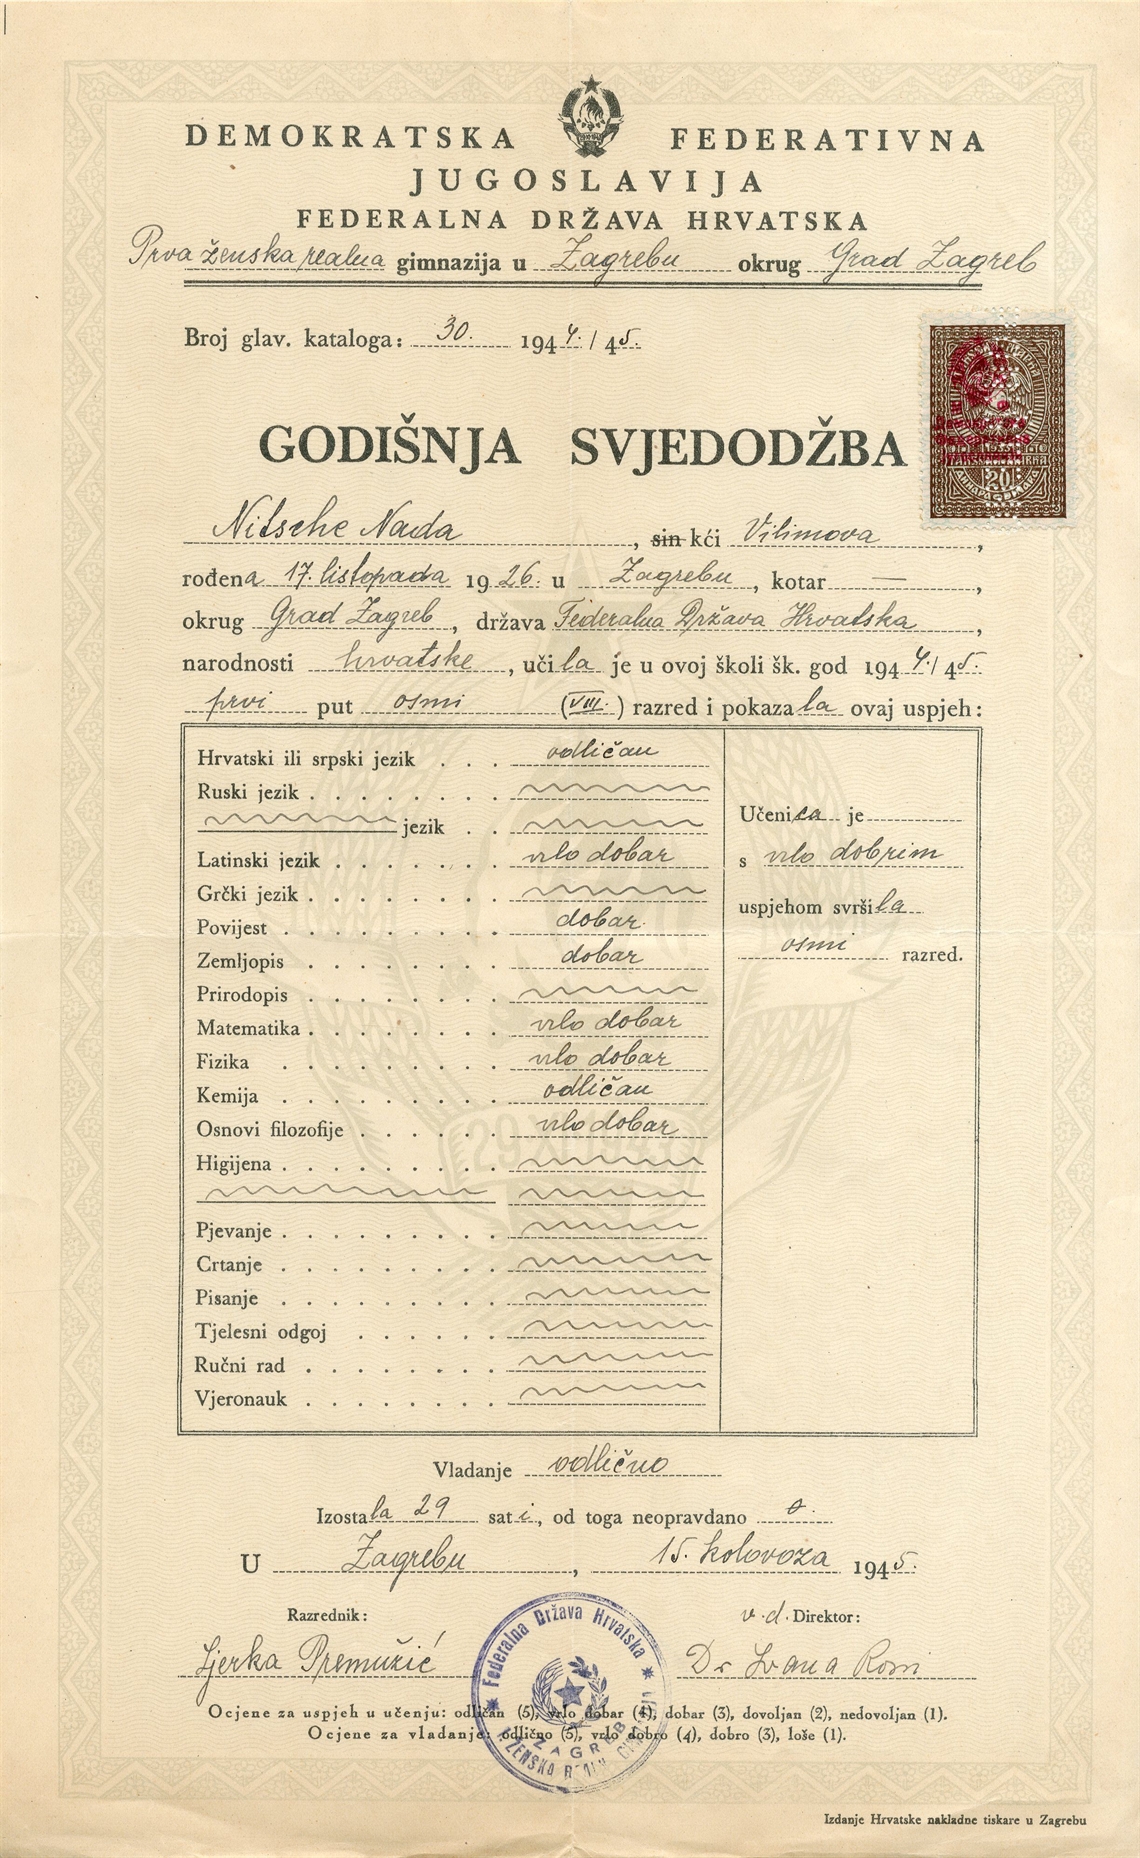 DEMOKRATSKA FEDERATIVNA
JUGOSLAVIJA
FEDERALNA DRŽAVA HRVATSKA
Prva ženska realna gimnazija u Zagrebu okrug Grad Zagreb
Broj glav. kataloga: 30. 1944./45.
GODIŠNJA SVJEDODŽBA
20
Nitsche Nada, sin kći Vilimova,
rođena 17. listopada 1926. u Zagrebu, kotar —,
okrug Grad Zagreb, država Federalna Država Hrvatska,
narodnosti hrvatske, učila je u ovoj školi šk. god 1944./45.
prvi put osmi (VIII.) razred i pokazala ovaj uspjeh:
Hrvatski ili srpski jezik . . . odličan
Ruski jezik
jezik
Latinski jezik vrlo dobar
Grčki jezik
Povijest dobar
Zemljopis dobar
Prirodopis
Matematika vrlo dobar
Fizika vrlo dobar
Kemija odličan
Osnovi filozofije vrlo dobar
Higijena
Pjevanje
Crtanje
Pisanje
Tjelesni odgoj
Ručni rad
Vjeronauk
Učenica je
s vrlo dobrim
uspjehom svršila
osmi razred.
Vladanje odlično
Izostala 29 sati, od toga neopravdano 0.
U Zagrebu, 15. kolovoza 1945.
Razrednik: v.d. Direktor:
Ljerka Premužić Dr Ivana Rossi
Federalna Država Hrvatska
ZAGREB
Ocjene za uspjeh u učenju: odličan (5), vrlo dobar (4), dobar (3), dovoljan (2), nedovoljan (1).
Ocjene za vladanje: odlično (5), vrlo dobro (4), dobro (3), loše (1).
Izdanje Hrvatske nakladne tiskare u Zagrebu